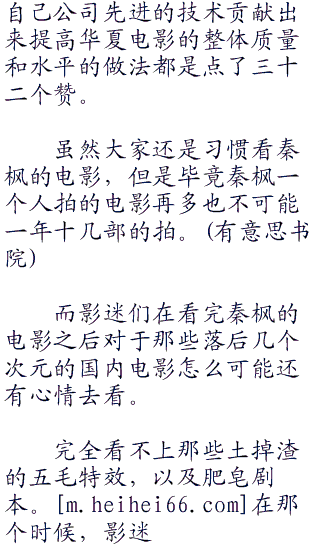 自己公司先进的技术贡献出
来提高华夏电影的整体质量
和水平的做法都是点了三十
二个赞。
虽然大家还是习惯看秦
枫的电影，但是毕竟秦枫一
个人拍的电影再多也不可能
一年十几部的拍。(有意思书
院)
而影迷们在看完秦枫的
电影之后对于那些落后几个
次元的国内电影怎么可能还
有心情去看。
完全看不上那些土掉渣
的五毛特效，以及肥皂剧
本。[m.heihei66.com]在那
个时候，影迷